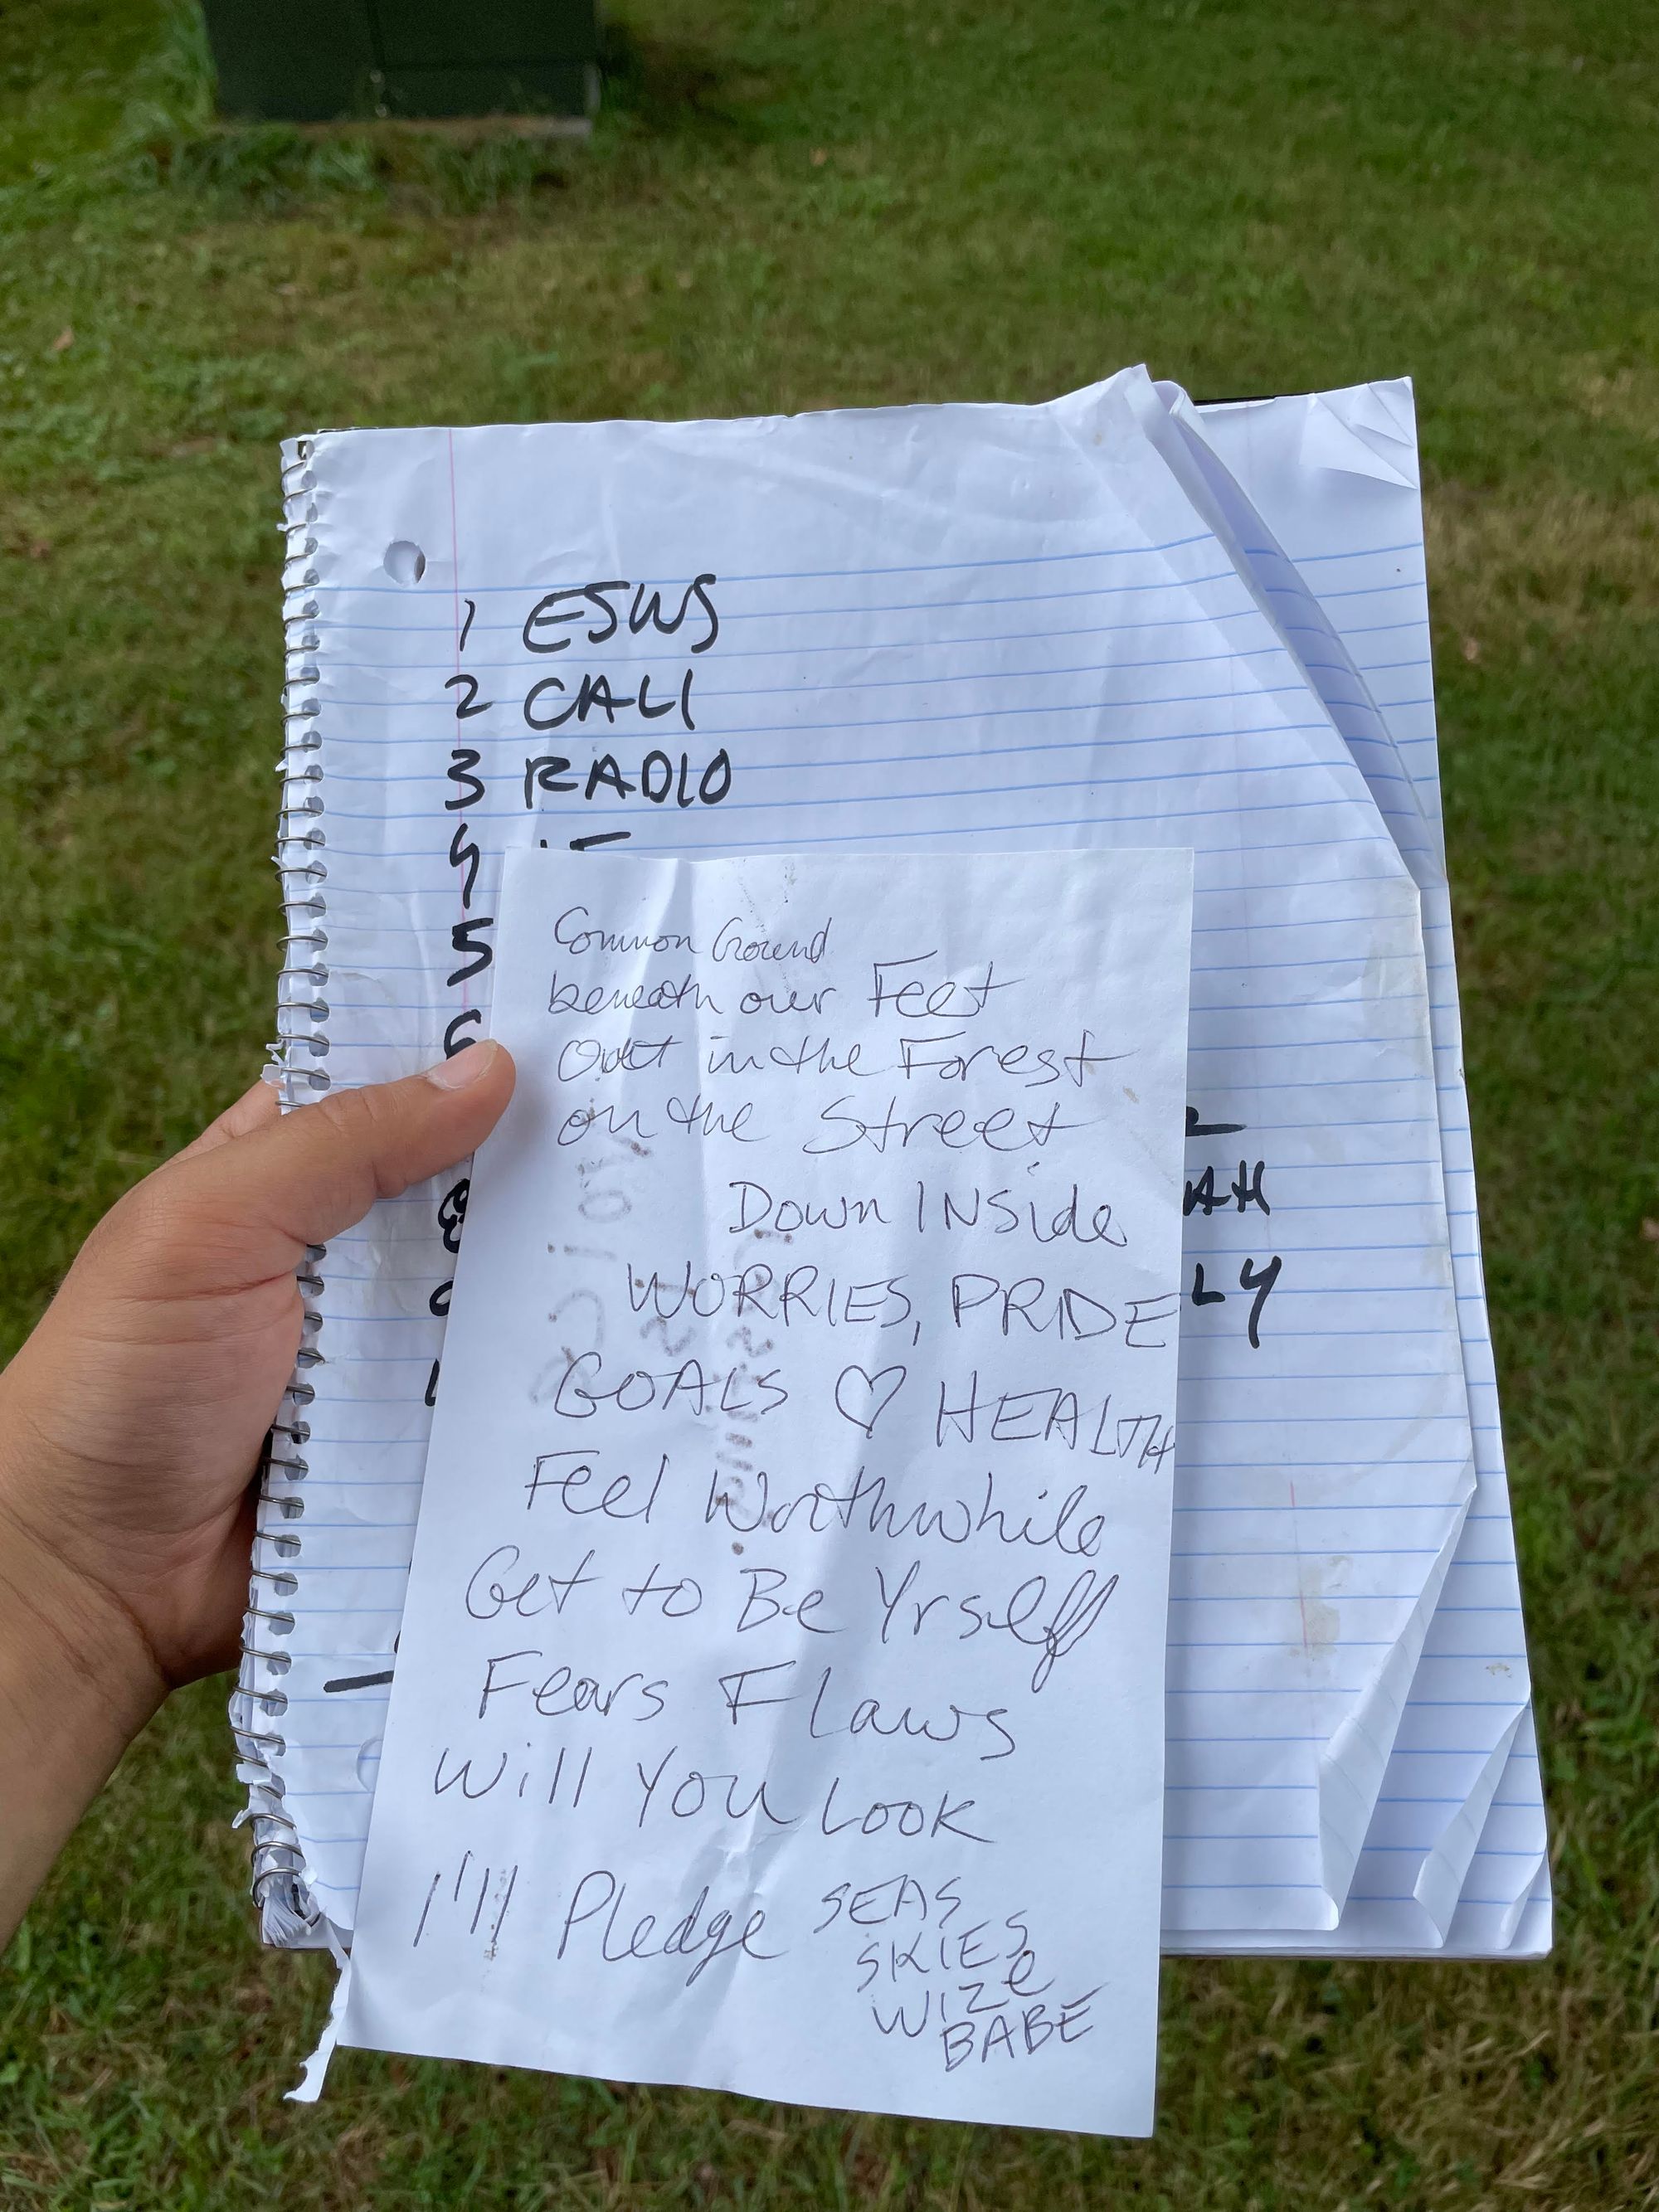 1 ESWS
2 CALI
3 RADIO
4
5
6
Common Ground
beneath our Feet
Out in the Forest
on the Street
Down INSide
WORRIES, PRIDE
GOALS ♡ HEALTH
Feel Worthwhile
Get to Be Yrself
Fears Flaws
Will You Look
I'll Pledge SEAS
SKIES
WIZe
BABE
8
AH
LY